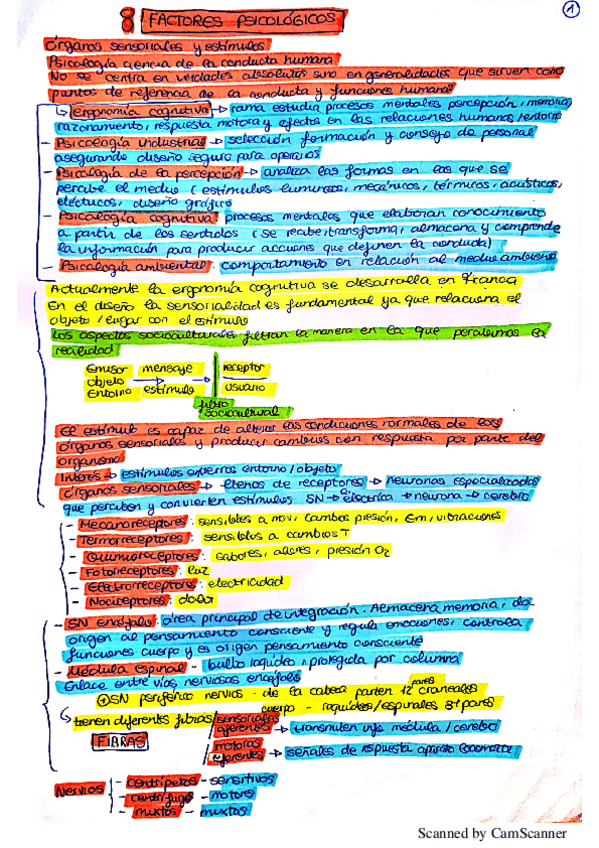 8 FACTORES PSICOLÓGICOS
1
Órganos sensoriales y estímulos
Psicología ciencia de la conducta humana
No se centra en verdades absolutas sino en generalidades que sirven como
puntos de referencia de la conducta y funciones humanas
↳ ergonomía cognitiva → rama estudia procesos mentales percepción, memoria,
razonamiento, respuesta motora y efectos en las relaciones humanos/entorno
- Psicología industrial → selección formación y consejo de personal
asegurando diseño seguro para operarios
- Psicología de la percepción → analiza las formas en las que se
percibe el medio (estímulos luminosos, mecánicos, térmicos, acústicos,
eléctricos, diseño gráfico
- Psicología cognitiva: procesos mentales que elaboran conocimiento
a partir de los sentidos (se recibe, transforma, almacena y comprende
la información para producir acciones que definen la conducta)
- Psicología ambiental: comportamiento en relación al medio ambiente
Actualmente la ergonomía cognitiva se desarrolla en Francia
En el diseño la sensorialidad es fundamental ya que relaciona el
objeto / lugar con el estímulo
Los aspectos socioculturales filtran la manera en la que percibimos la
realidad
Emisor mensaje receptor
objeto → →
Entorno estímulo usuario
filtro
sociocultural
El estímulo es capaz de alterar las condiciones normales de los
órganos sensoriales y producir cambios con respuesta por parte del
organismo
Interés → estímulos externos entorno/objeto
órganos sensoriales → llenos de receptores → neuronas especializadas
que perciben y convierten estímulos SN → eléctrica → neurona → cerebro
- Mecanoreceptores: sensibles a mov. cambios presión, Em, vibraciones
- Termorreceptores: sensibles a cambios T
- Quimiorreceptores: sabores, olores, presión O2
- Fotoreceptores: luz
- Electrorreceptores: electricidad
- Nociceptores: dolor
- SN encéfalo: área principal de integración. Almacena memoria, da
origen al pensamiento consciente y regula emociones, controla
funciones cuerpo y es origen pensamiento consciente
- Médula espinal - bulbo raquídeo, protegida por columna
Enlace entre vías nerviosas encéfalo
SN periférico nervios - de la cabeza parten 12 pares craneales
cuerpo - raquídeos/espinales 31 pares
↳ tienen diferentes fibras
sensoriales
aferentes → transmiten info médula / cerebro
FIBRAS
motoras
eferentes → señales de respuesta aparato locomotor
Nervios
- centrípetos - sensitivos
- centrífugos - motores
- mixtos - mixtos
Scanned by CamScanner